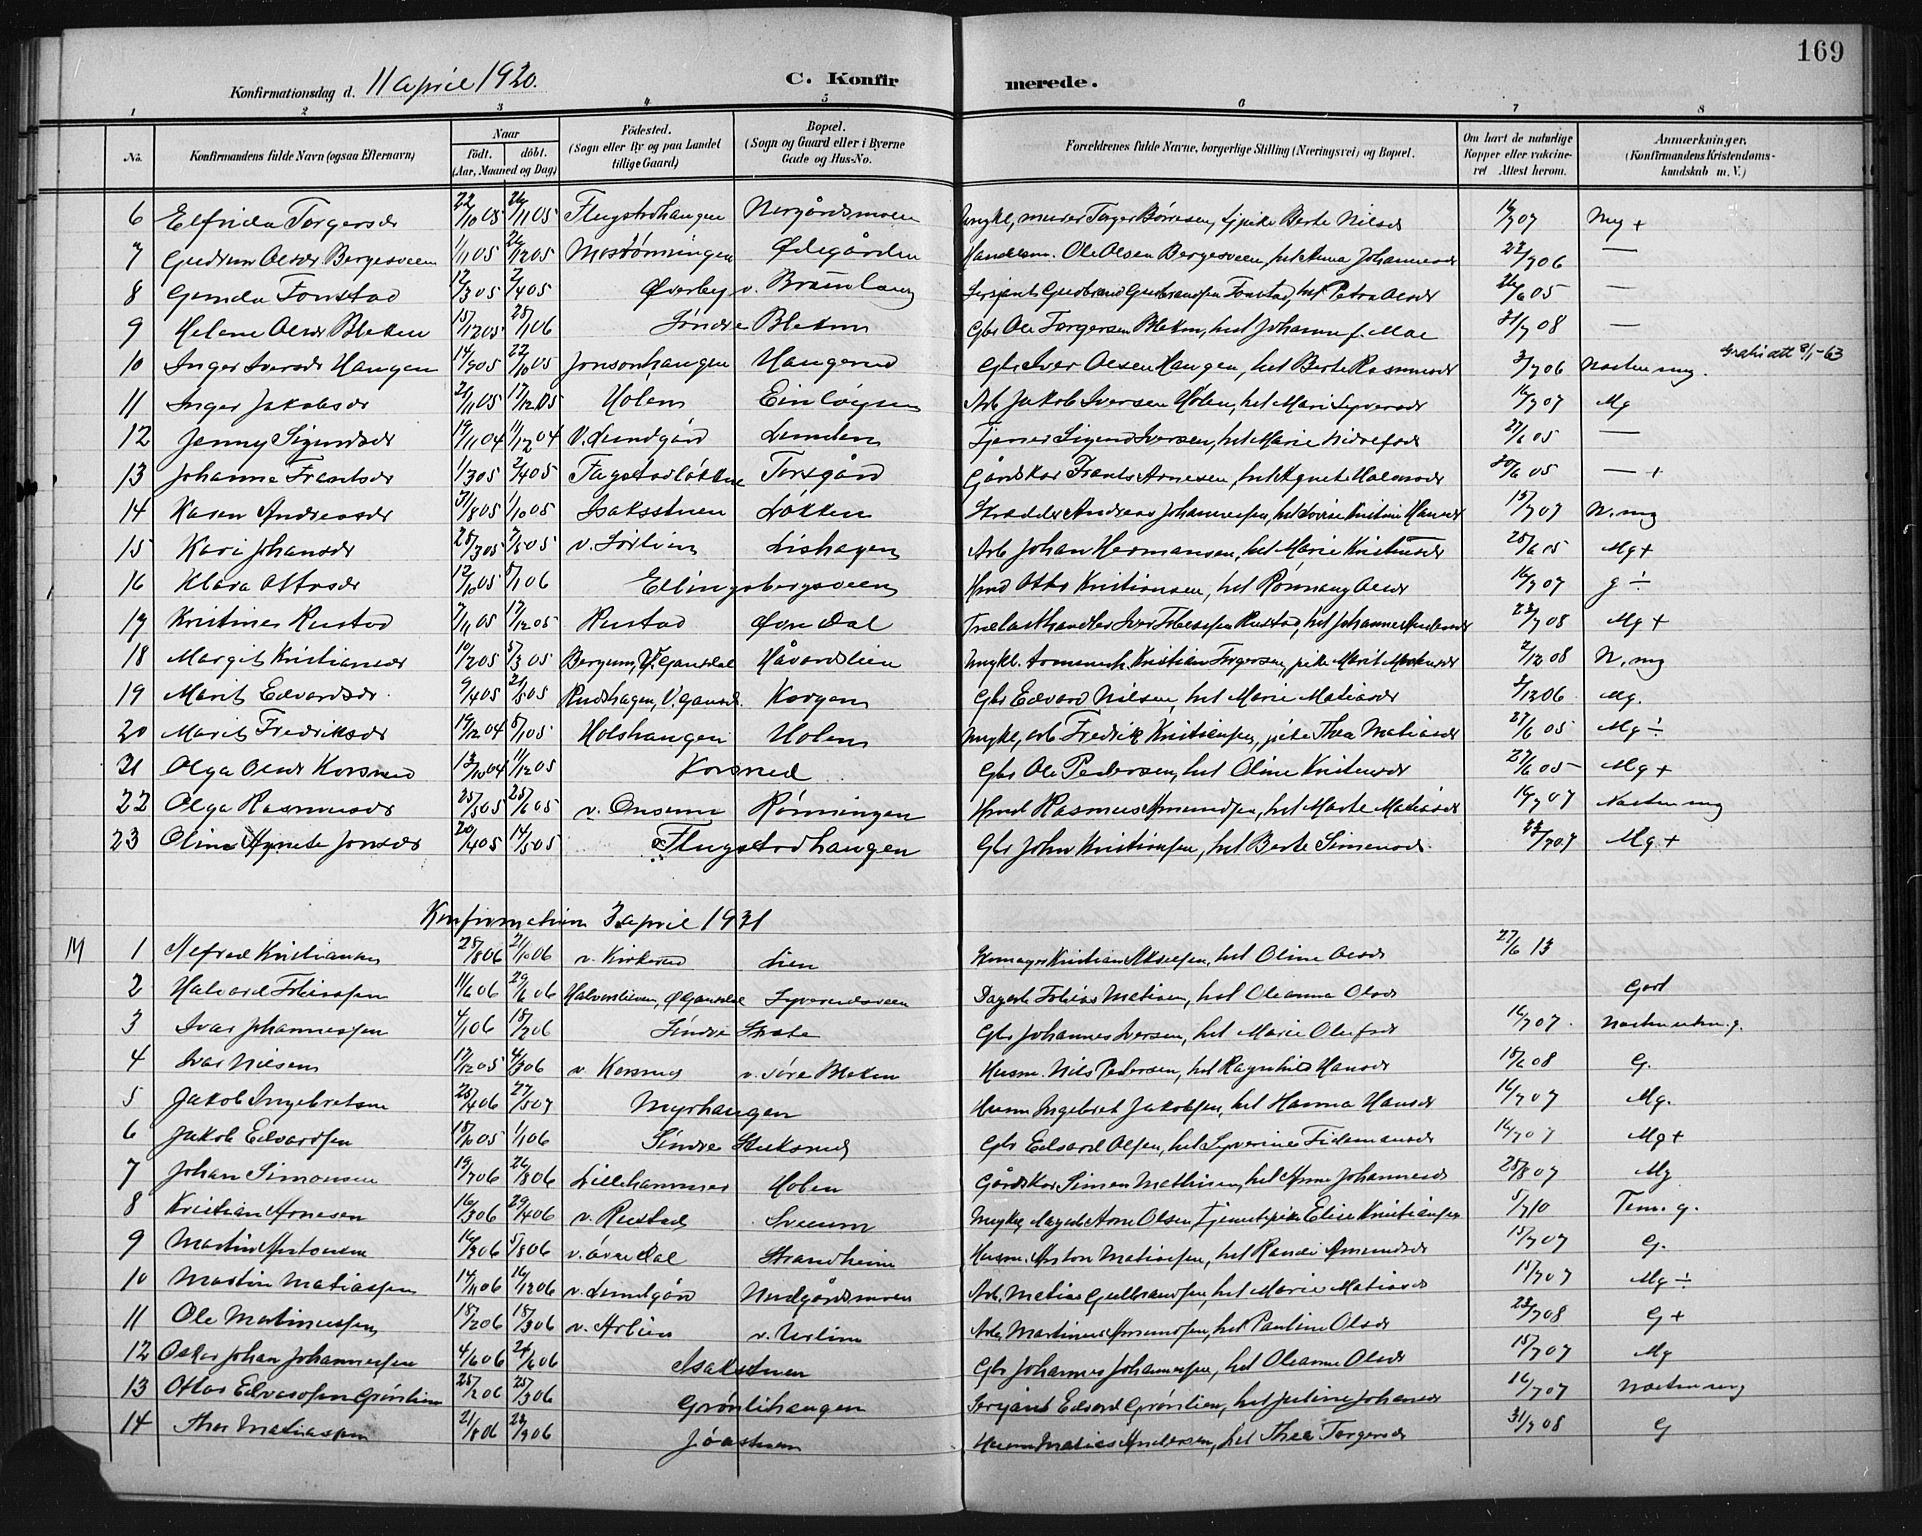 169
Konfirmationsdag d. 11 april 1920. C. Konfirmerede.
1 2 3 4 5 6 7 8
No. Konfirmandens fulde Navn (ogsaa Efternavn) Naar født. døbt. (Aar, Maaned og Dag) Fødested. (Sogn eller By og paa Landet tillige Gaard) Bopæl. (Sogn og Gaard eller i Byerne Gade og Hus-No. Forældrenes fulde Navne, borgerlige Stilling (Næringsvei) og Bopæl. Om havt de naturlige Kopper eller vakcineret Attest herom. Anmærkninger. (Konfirmandens Kristendomskundskab m. V.)
6 Elfrida Torgersdr 22/10 05 26/11 05 Flugstadhaugen Nergårdsmoen Ungkl, murer Torger Børresen, pike Berte Nilsdr 16/7 07 Mg +
7 Gudrun Olsdr Bergesveen 1/11 05 26/12 05 Mostørningen Ødegården Handelsm. Ole Olsen Bergesveen, het Anna Johannesdr 22/7 06 —
8 Gunda Fonstad 12/3 05 2/4 05 Øverby v. Braunlaug Sersjant Gudbrand Gudbrandsen Fonstad, het Petra Olsdr 26/6 05 —
9 Helene Olsdr Bleken 15/12 05 28/1 06 Søndre Bleken Gbr Ole Torgersen Bleken, het Johanne f. Moe 31/7 08 —
10 Inger Iversdr Haugen 14/9 05 22/10 05 Jonsonhaugen Haugerud Gbr Iver Olsen Haugen, het Berte Rasmusdr 3/7 06 Nesten mg.
11 Inger Jakobsdr 21/11 05 17/12 05 Holen Arb Jakob Iversen Holen, het Mari Syversdr 16/7 07 Mg
12 Jenny Sigurdsdr 19/11 04 11/12 04 V. Lundgård Linden Tjener Sigurd Iversen, het Marie 27/6 05 —
13 Johanne Frantsdr 1/3 05 2/4 05 Flugstadløkken Torsgård Gårdskar Frants Arnesen, het Agnete 20/6 05 — +
14 Karen Andreasdr 31/8 05 1/10 05 Isaksstuen Løkken Skrædder Andreas Johannessen, het Lovise Kristine Hansdr 15/7 07 N. mg
15 Kari Johansdr 28/3 05 7/5 05 v. Sørlien Lishagen Arb Johan Hermansen, het Marie Kristiansdr 28/6 15 Mg +
16 Klara Ottosdr 12/10 05 5/1 06 Ellingsbergsveen Hmd Otto Kristiansen, het Rønnaug Olsdr 16/7 07 g ÷
17 Kristine Rustad 7/11 05 17/12 05 Rustad Øvre Dal Trælasthandler Iver Tobiassen Rustad, het Johanne 22/7 08 Mg +
18 Margit Kristiansdr 10/2 05 5/3 05 Bergum, V. Gausdal Håvardslien Ungkl. Kristian Torgersen, pike Marit 2/12 08 N. mg
19 Marit Edvardsdr 9/4 05 21/5 05 Rudshagen, V. Gausd. Korgen Gbr Edvard Nilsen, het Marie Matiasdr 2/12 06 Mg.
20 Marit Fredriksdr 19/12 04 5/1 05 Holshaugen Holen Ungkl, arb Fredrik Kristiansen, pike Thea Matiasdr 27/6 05 Mg ÷
21 Olga Olsdr Korsrud 13/10 04 11/12 05 Korsrud Gbr Ole Pedersen, het Oline Kristensdr 27/6 05 Mg +
22 Olga Rasmusdr 25/5 05 25/6 05 v. Onsum Rønningen Hmd Rasmus Amundsen, het Marte Matiasdr 16/7 07 Nesten mg
23 Oline Agnete Jonsdr 20/4 05 14/5 05 Flugstadhaugen Gbr John Kristiansen, het Berte Simensdr. 22/7 07 Mg +
Konfirmation 3 april 1921
M 1 Alfred Kristiansen 25/8 06 21/10 06 v. Kirkerud Lien Skomager Kristian Akselsen, het Oline Olsdr 27/6 13
2 Halvard Tobiassen 11/6 06 29/6 06 Halvorslien, Ø Gausdal Syverudsveen Dagarb Tobias Matisen, het Oleanna Olsdr Godt
3 Ivar Johannessen 4/1 06 18/2 06 Søndre Skate Gbr Johannes Iversen, het Marie Olufsdr 16/7 07. Nesten g.
4 Ivar Nilsen 17/12 05 4/3 06 v. Korsrud v. Søre Bleken Husm. Nils Pedersen, het Ragnhild Hansdr 18/6 08 G.
5 Jakob Ingebretsen 23/4 06 27/5 07 Myrhaugen Husm Ingebret Jakobsen, het Hanna Hansdr 16/7 07 Mg.
6 Jakob Edvardsen 18/10 05 1/1 06 Søndre Sluksrud Gbr Edvard Olsen, het Syverine Tidemansdr 16/7 07 Mg +
7 Johan Simonsen 19/7 06 26/8 06 Lillehammer Holen Gårdskar Simen Mathisen, het Anne Johannesdr 28/8 07 Mg
8 Kristian Arnesen 16/3 06 29/4 06 v. Rustad Sveum Ungkl Arne Olsen, Tjenestpike Elise Kristiansen 5/7 10 Tem. g.
9 Martin Antonsen 16/7 06 5/8 06 v. øvre Dal Strandheim Husm. Anton Matiassen, het Randi Amundsdr 15/7 07 G.
10 Martin Matiassen 14/11 06 16/12 06 v. Lundgård Nordgårdsmoen Arb. Matias Gulbrandsen, het Marie Matiasdr 15/7 07 Mg ÷
11 Ole Martinussen 18/2 06 18/3 06 v. Arlien Arb Martinus Amundsen, het Pauline Olsdr 23/7 08 G +
12 Oskar Johan Johannessen 4/6 06 24/6 06 Isakstuen Gbr Johannes Johannessen, het Oleanne Olsdr 15/7 07 Mg
13 Ottar Edvardsen Grønlien 25/2 06 25/3 06 Grønlihaugen Sersjant Edvard Grønlien, het Justine Johansdr 16/7 07 Nesten mg
14 Thor Matiassen 21/8 06 23/9 06 Jøastuen Husm Matias Andersen, het Thea Torgersdr 31/7 08 G